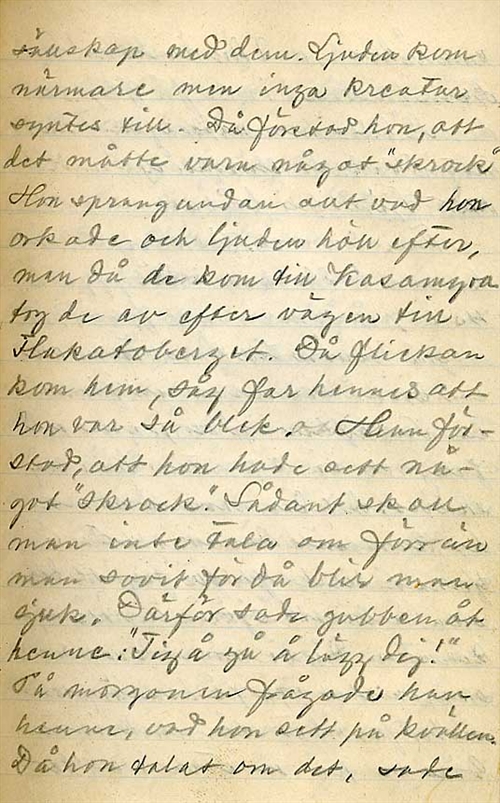 sällskap med dem. Ljuden kom
närmare men inga kreatur
syntes till. Då förstod hon, att
det måtte vara något "skrock"
Hon sprang undan allt vad hon
orkade och ljuden höll efter,
men då de kom till Kasamyra
tog de av efter vägen till
Flakatoberget. Då flickan
kom hem, såg far hennes att
hon var så blek. Han för-
stod, att hon hade sett nå-
got "skrock". Sådant skall
man inte tala om förrän
man sovit för då blir man
sjuk. Därför sade gubben åt
henne: "Tig å gå å lägg dig!"
På morgonen frågade han
henne, vad hon sett på kvällen.
Då hon talat om det, sade